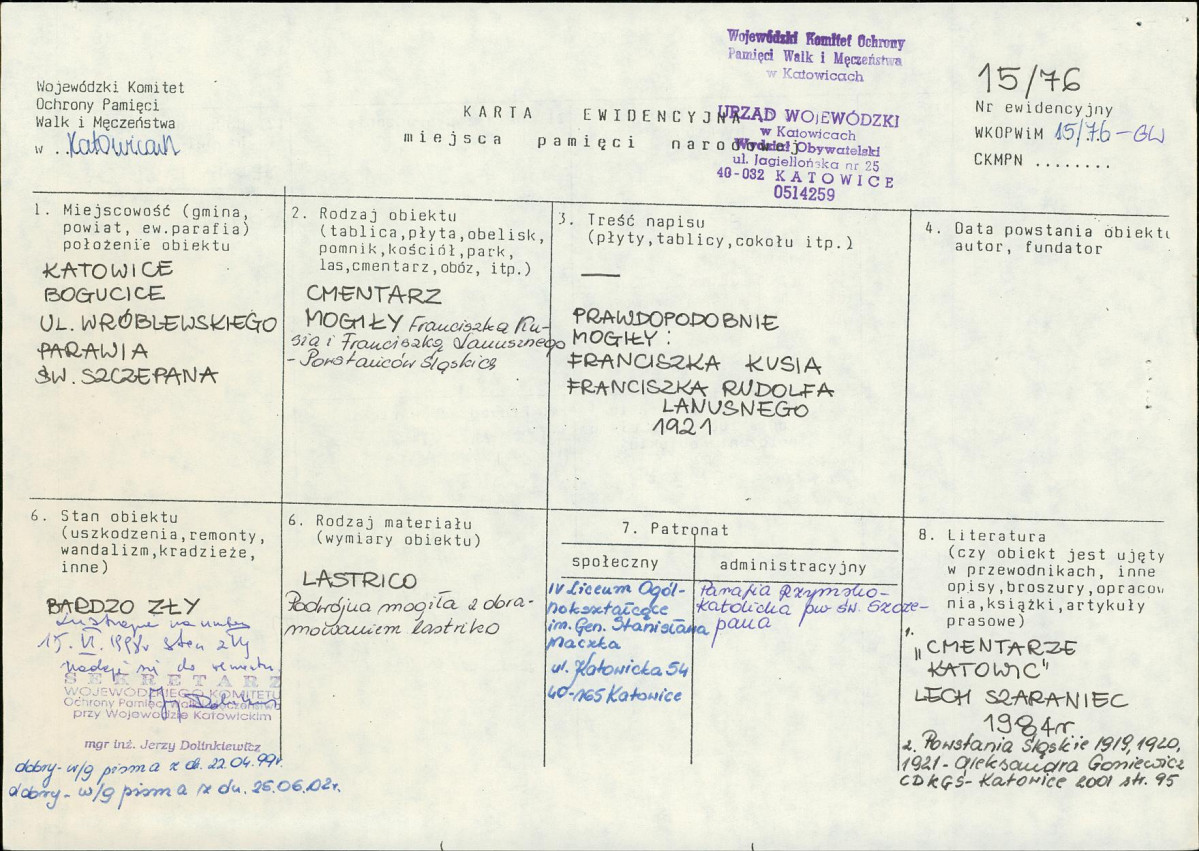 Wojewódzki Komitet Ochrony
Pamięci Walk i Męczeństwa
w Katowicach
Wojewódzki Komitet
Ochrony Pamięci
Walk i Męczeństwa
w ..Katowicach
KARTA EWIDENCYJNA
miejsca pamięci narodowej
URZĄD WOJEWÓDZKI
w Katowicach
Wydział Obywatelski
ul. Jagiellońska nr 25
40-032 KATOWICE
0514259
15/76
Nr ewidencyjny
WKOPWiM 15/76-GW
CKMPN ........
1. Miejscowość (gmina,
powiat, ew.parafia)
położenie obiektu
KATOWICE
BOGUCICE
UL. WRÓBLEWSKIEGO
PARAWIA
ŚW. SZCZEPANA
2. Rodzaj obiektu
(tablica,płyta,obelisk,
pomnik,kościół,park,
las,cmentarz,obóz, itp.)
CMENTARZ
MOGIŁY Franciszka Ku-
sia i Franciszka Lanusznego
- Powstańców Śląskich
3. Treść napisu
(płyty,tablicy,cokołu itp.)
—
PRAWDOPODOBNIE
MOGIŁY:
FRANCISZKA KUSIA
FRANCISZKA RUDOLFA
LANUSNEGO
1921
4. Data powstania obiektu
autor, fundator
6. Stan obiektu
(uszkodzenia,remonty,
wandalizm,kradzieże,
inne)
BARDZO ZŁY
15. VI. 1998r stan zły
nadaje się do remontu
SEKRETARZ
WOJEWÓDZKIEGO KOMITETU
Ochrony Pamięci Walk i Męczeństwa
przy Wojewodzie Katowickim
mgr inż. Jerzy Dolinkiewicz
dobry - w/g pisma z dn. 22.04.99r.
dobry - w/g pisma z dn. 26.06.02r.
6. Rodzaj materiału
(wymiary obiektu)
LASTRICO
Podwójna mogiła z obra-
mowaniem lastriko
7. Patronat
społeczny
IV Liceum Ogól-
nokształcące
im. Gen. Stanisława
Maczka
ul. Katowicka 54
40-165 Katowice
administracyjny
Parafia Rzymsko-
katolicka pw św. Szcze-
pana
8. Literatura
(czy obiekt jest ujęty
w przewodnikach, inne
opisy,broszury,opracow
nia,książki,artykuły
prasowe)
1. "CMENTARZE
KATOWIC"
LECH SZARANIEC
1984r
2. Powstania Śląskie 1919, 1920,
1921 - Aleksandra Goniewicz
CDKGŚ - Katowice 2001 str. 95